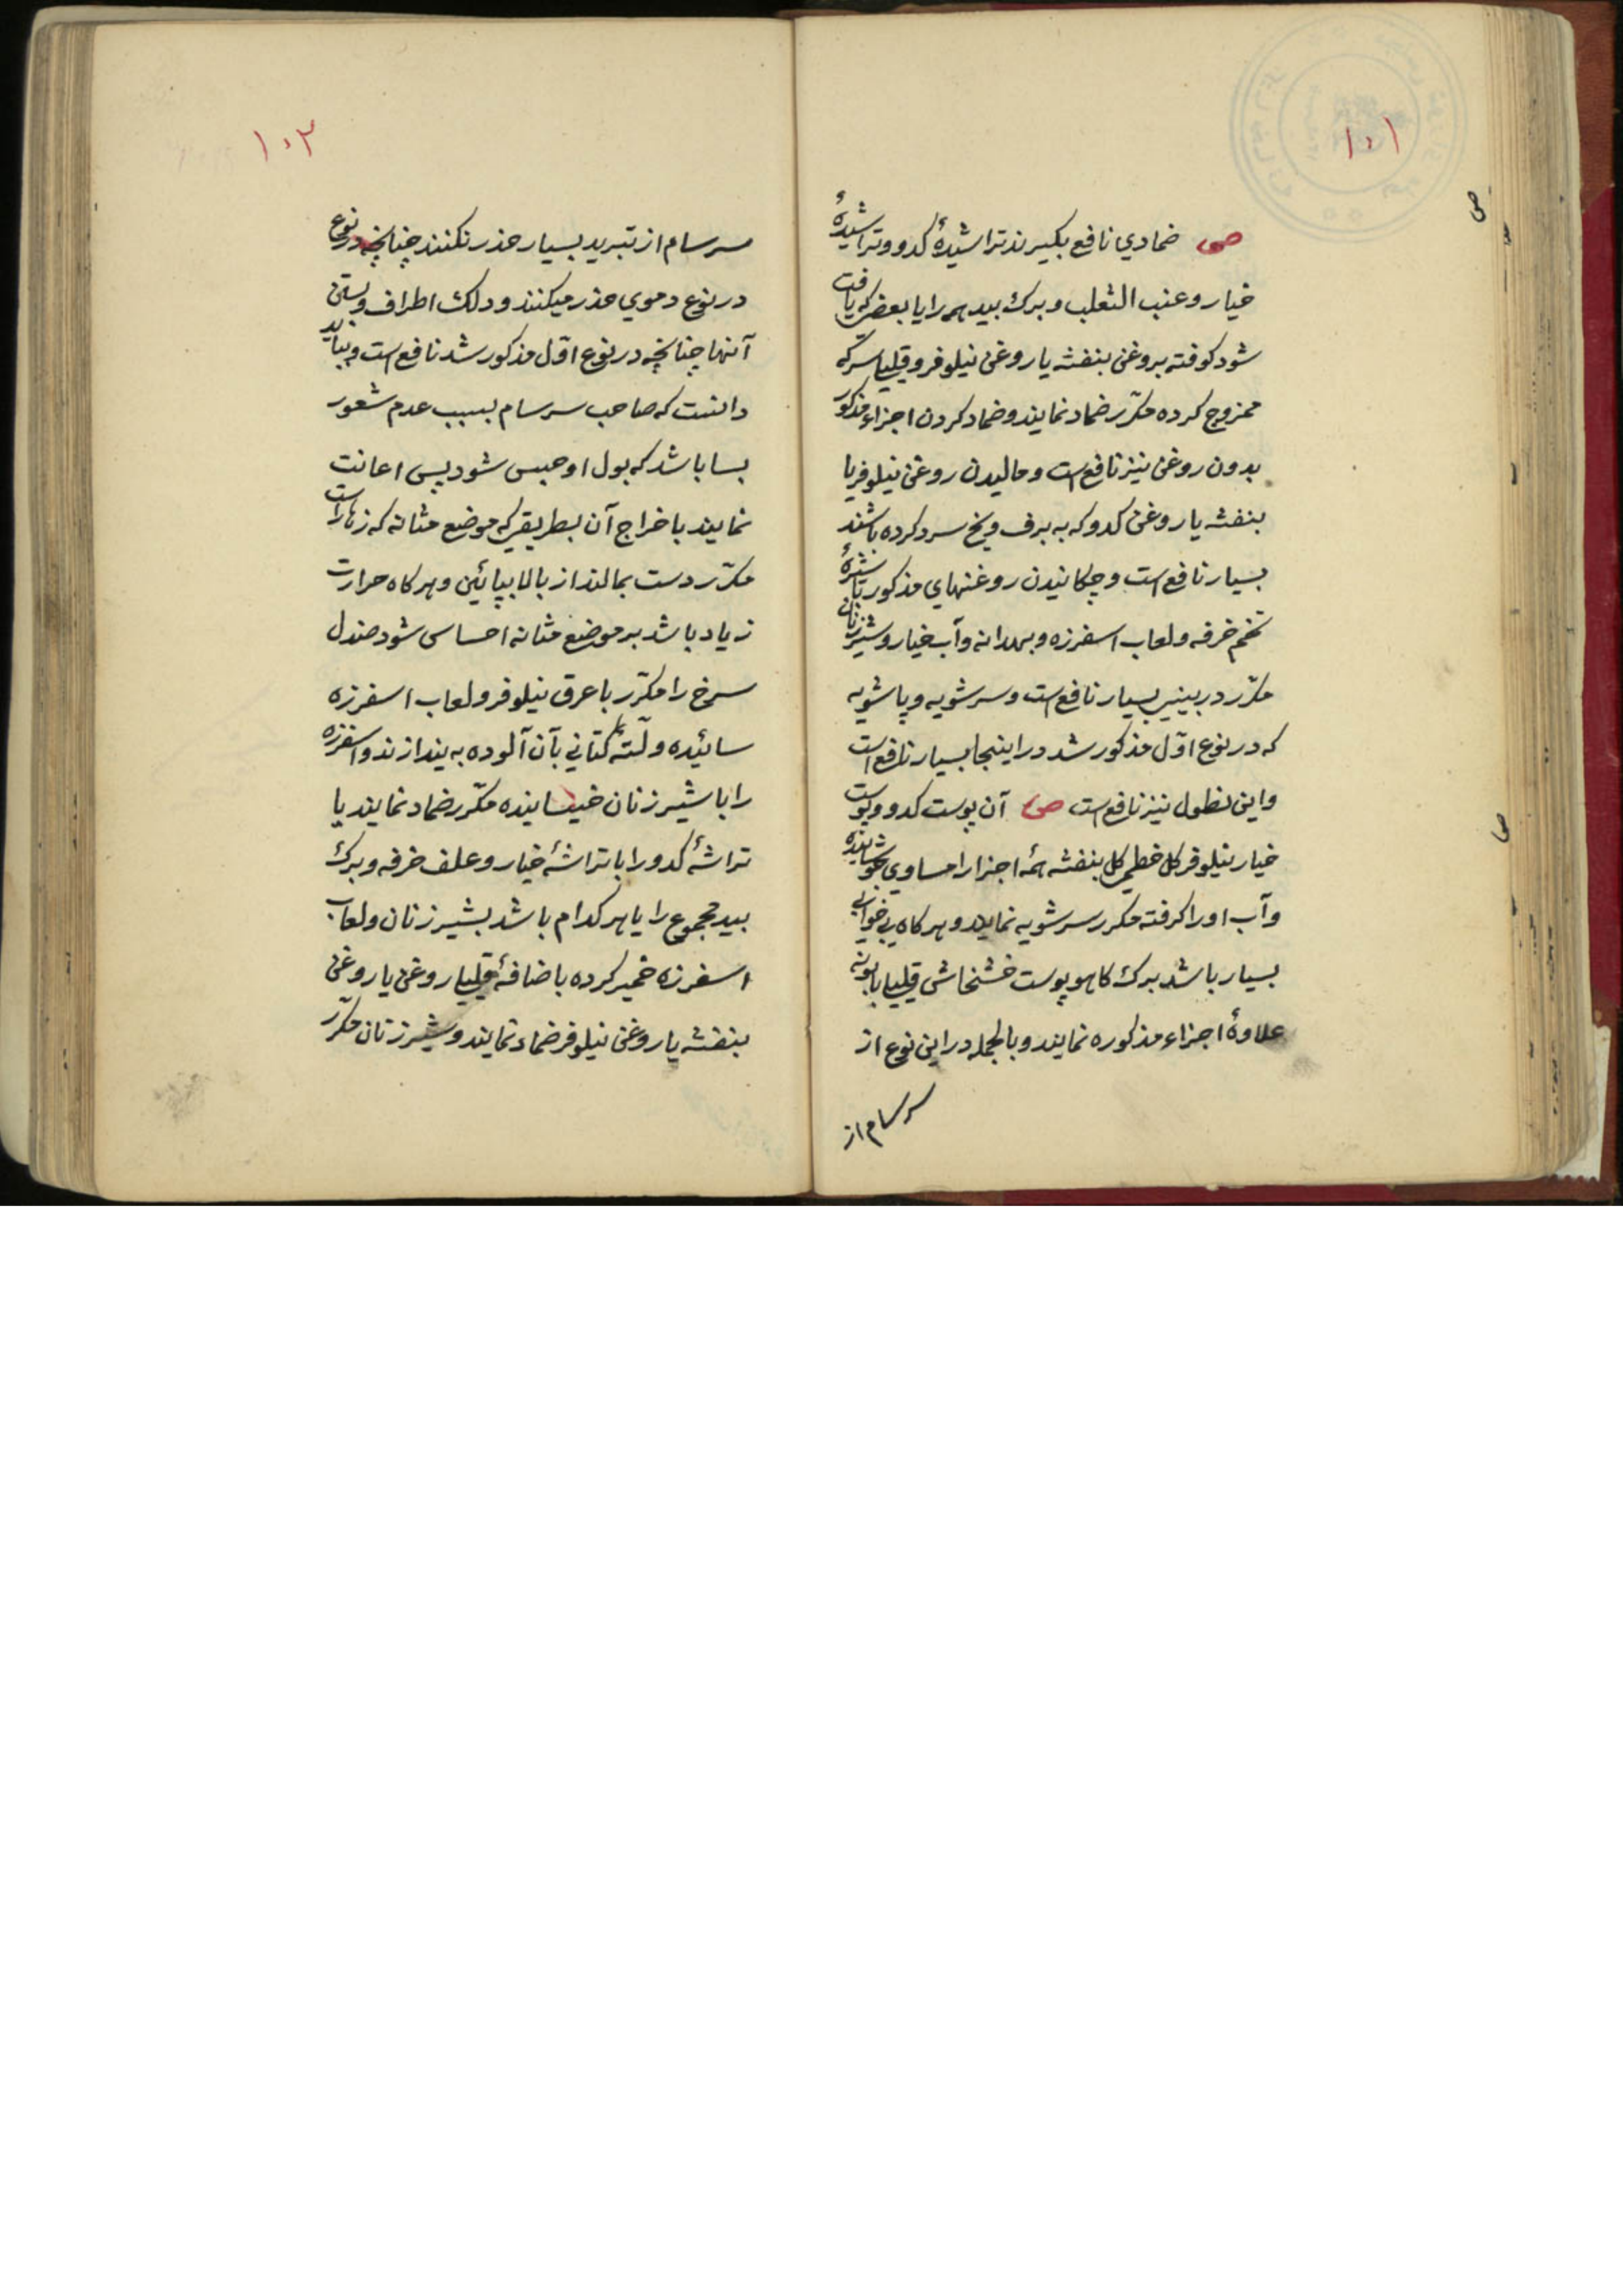 ۱۰۱
ص ضمادي نافع بكيرند تراشيدۀ كدو و تراشيدۀ
خيار و عنب الثعلب و برك بيد همه را يا بعضي كه يافت
شود كوفته بروغن بنفشه يا روغن نيلوفر و قليلي سركه
ممزوج كرده مكرّر ضماد نمايند و ضماد كردن اجزاء مذكور
بدون روغن نيز نافع است و ماليدن روغن نيلوفر يا
بنفشه يا روغن كدو كه به برف و يخ سرد كرده باشند
بسيار نافع است و چكانيدن روغنهاي مذكور با شيرۀ
تخم خرفه و لعاب اسفرزه و بهدانه و آب خيار و شير زنان
مكرّر در بيني بسيار نافع است و سرشويه و پاشويه
كه در نوع اوّل مذكور شد در اينجا بسيار نافع است
و اين نطول نيز نافع است ص آن پوست كدو و پوست
خيار نيلوفر كل خطمي كل بنفشه همۀ اجزا را مساوي بجوشانيده
و آب او را كرفته مكرر سرشويه نمايند و هركاه بي خوابي
بسيار باشد برك كاهو پوست خشخاش قليلي بابونه
علاوۀ اجزاء مذكوره نمايند و بالجمله در اين نوع از
سرسام از
ص
ص
۱۰۲
سرسام از تبريد بسيار حذر نكنند چنانچه در نوع
در نوع دموي حذر ميكنند و دلك اطراف و بستن
آنها چنانچه در نوع اوّل مذكور شد نافع است و ببايد
دانست كه صاحب سرسام بسبب عدم شعور
بسا باشد كه بول او حبس شود پس اعانت
نمايند باخراج آن بطريقي كه موضع مثانه كه زهار است
مكرّر دست بمالند از بالا بپائين و هركاه حرارت
زياد باشد بر موضع مثانه احساس شود صندل
سرخ را مكرّر با عرق نيلوفر و لعاب اسفرزه
سائيده و لتّۀ كتاني بآن آلوده به يندازند و اسفرزه
را با شير زنان خيسانيده مكرّر ضماد نمايند يا
تراشۀ كدو را با تراشۀ خيار و علف خرفه و برك
بيد مجموع را يا هركدام باشد بشير زنان و لعاب
اسفرزه خمير كرده باضافۀ قليلي روغن يا روغن
بنفشه يا روغن نيلوفر ضماد نمايند و شير زنان مكرّر